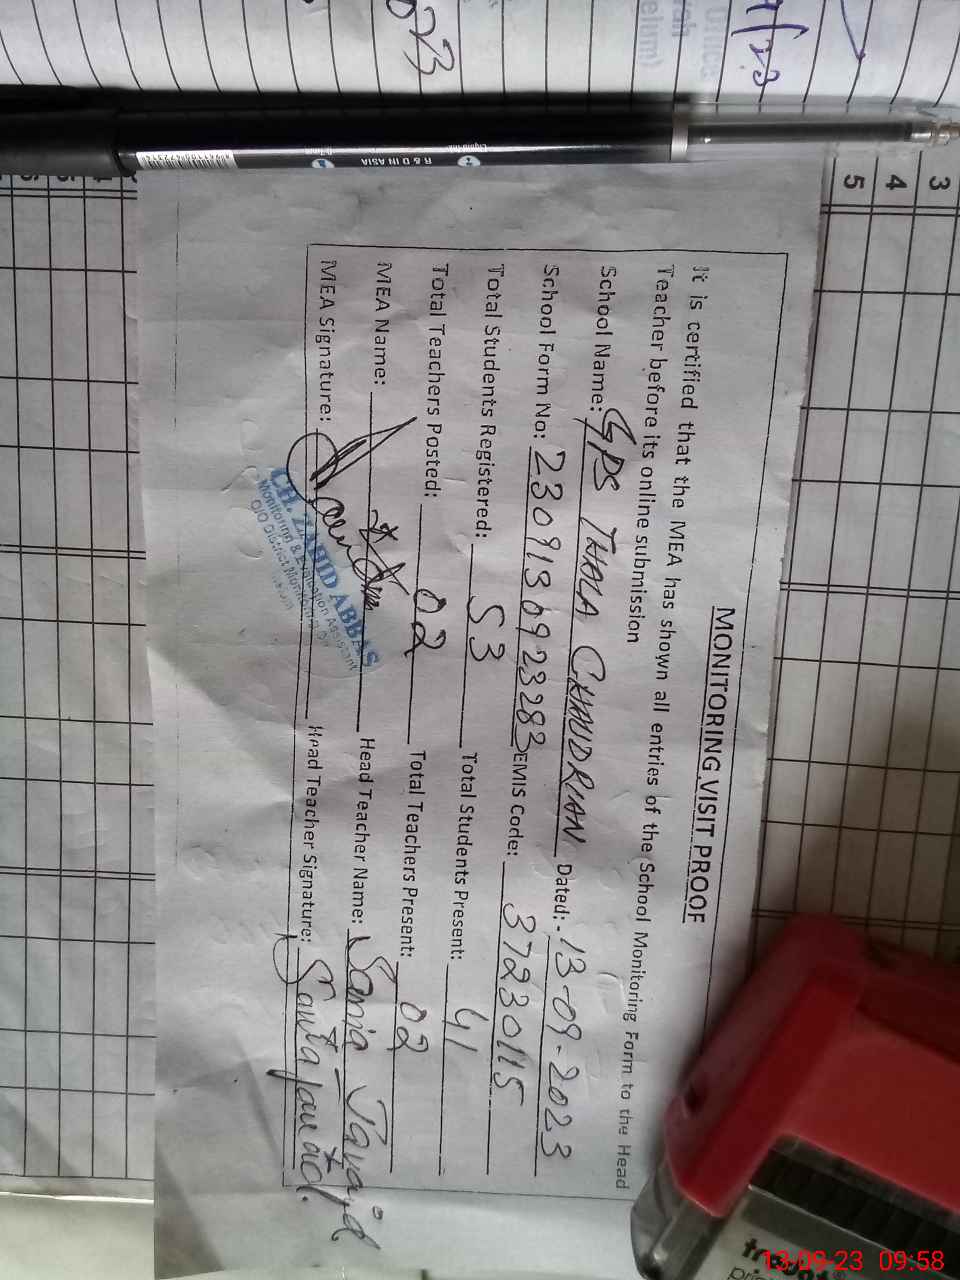 MONITORING VISIT PROOF
It is certified that the MEA has shown all entries of the School Monitoring Form to the Head
Teacher before its online submission
School Name: GPS THALA CHAUDRIAN Dated:- 13-09-2023
School Form No: 2309130923283 EMIS Code: 37230115
Total Students Registered: 53 Total Students Present: 41
Total Teachers Posted: 02 Total Teachers Present: 02
MEA Name: Head Teacher Name: Sania Javaid
MEA Signature: Head Teacher Signature:
CH. ZAHID ABBAS
Monitoring & Evaluation Assistant
O/O District Monitoring
R & D IN ASIA
3
4
5
5
6
13-09-23 09:58